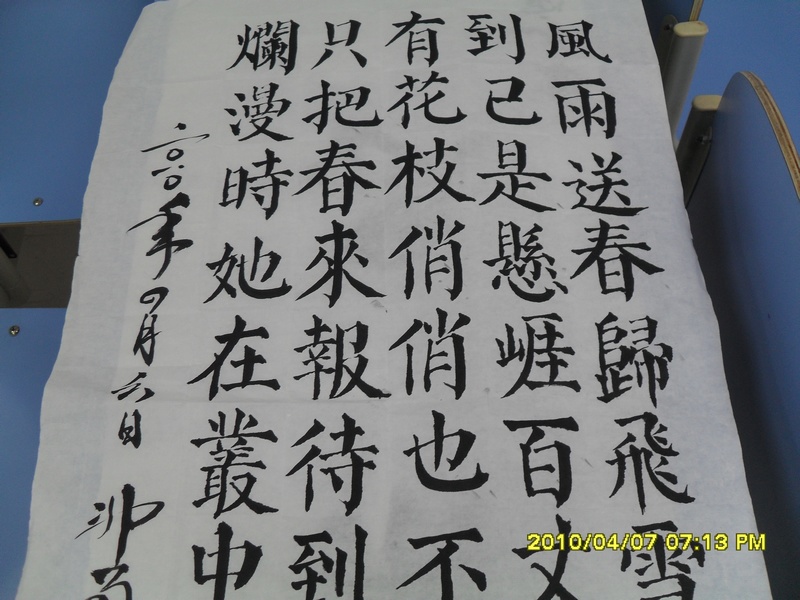 風雨送春歸飛雪
到已是懸崕百丈
有花枝俏俏也不
只把春來報待到
爛漫時她在叢中
二〇一〇年四月六日
2010/04/07 07:13 PM